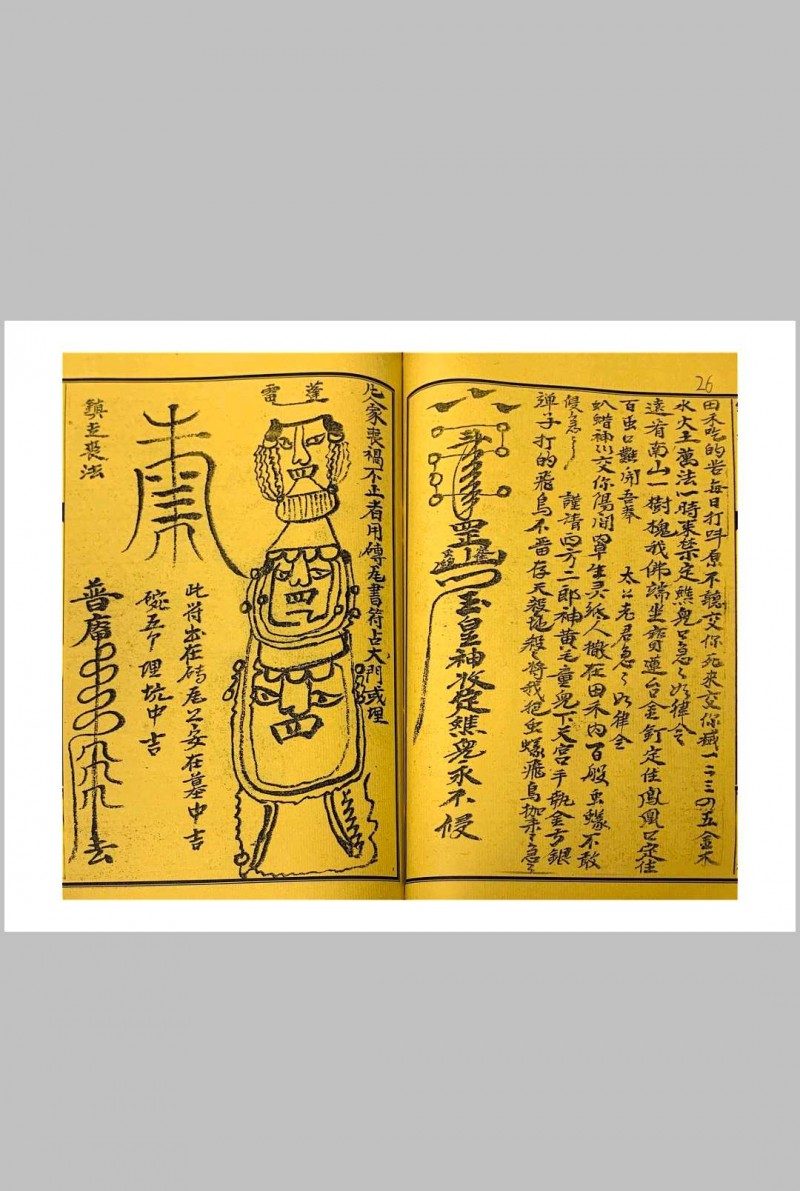 26
田禾吃的苦每日打呌原不聽交你死來交你滅一二三四五金木
水火土萬法一時來禁定鵲兒口急〻如律令
遠有南山一樹槐我佛端坐寶蓮台金釘定住鳳凰口定住
百虫口難開吾奉 太上老君急〻如律令
叭蜡神 交你陽間 人撒在田禾內百般虫蝝不敢
侵急〻 謹請四方二郎神黃毛童兒下天宮手執金弓銀
彈子打的飛鳥不 存天殺地殺 將我把虫蝝飛鳥枷來急〻
罡
玉皇神 定鵲兒永不侵
凡人家喪禍不正者用磚瓦書符占大門或埋
蓬
雷
鎮 喪法
此符出在磚瓦上安在墓中吉
碗五个埋坑中吉
普庵
去